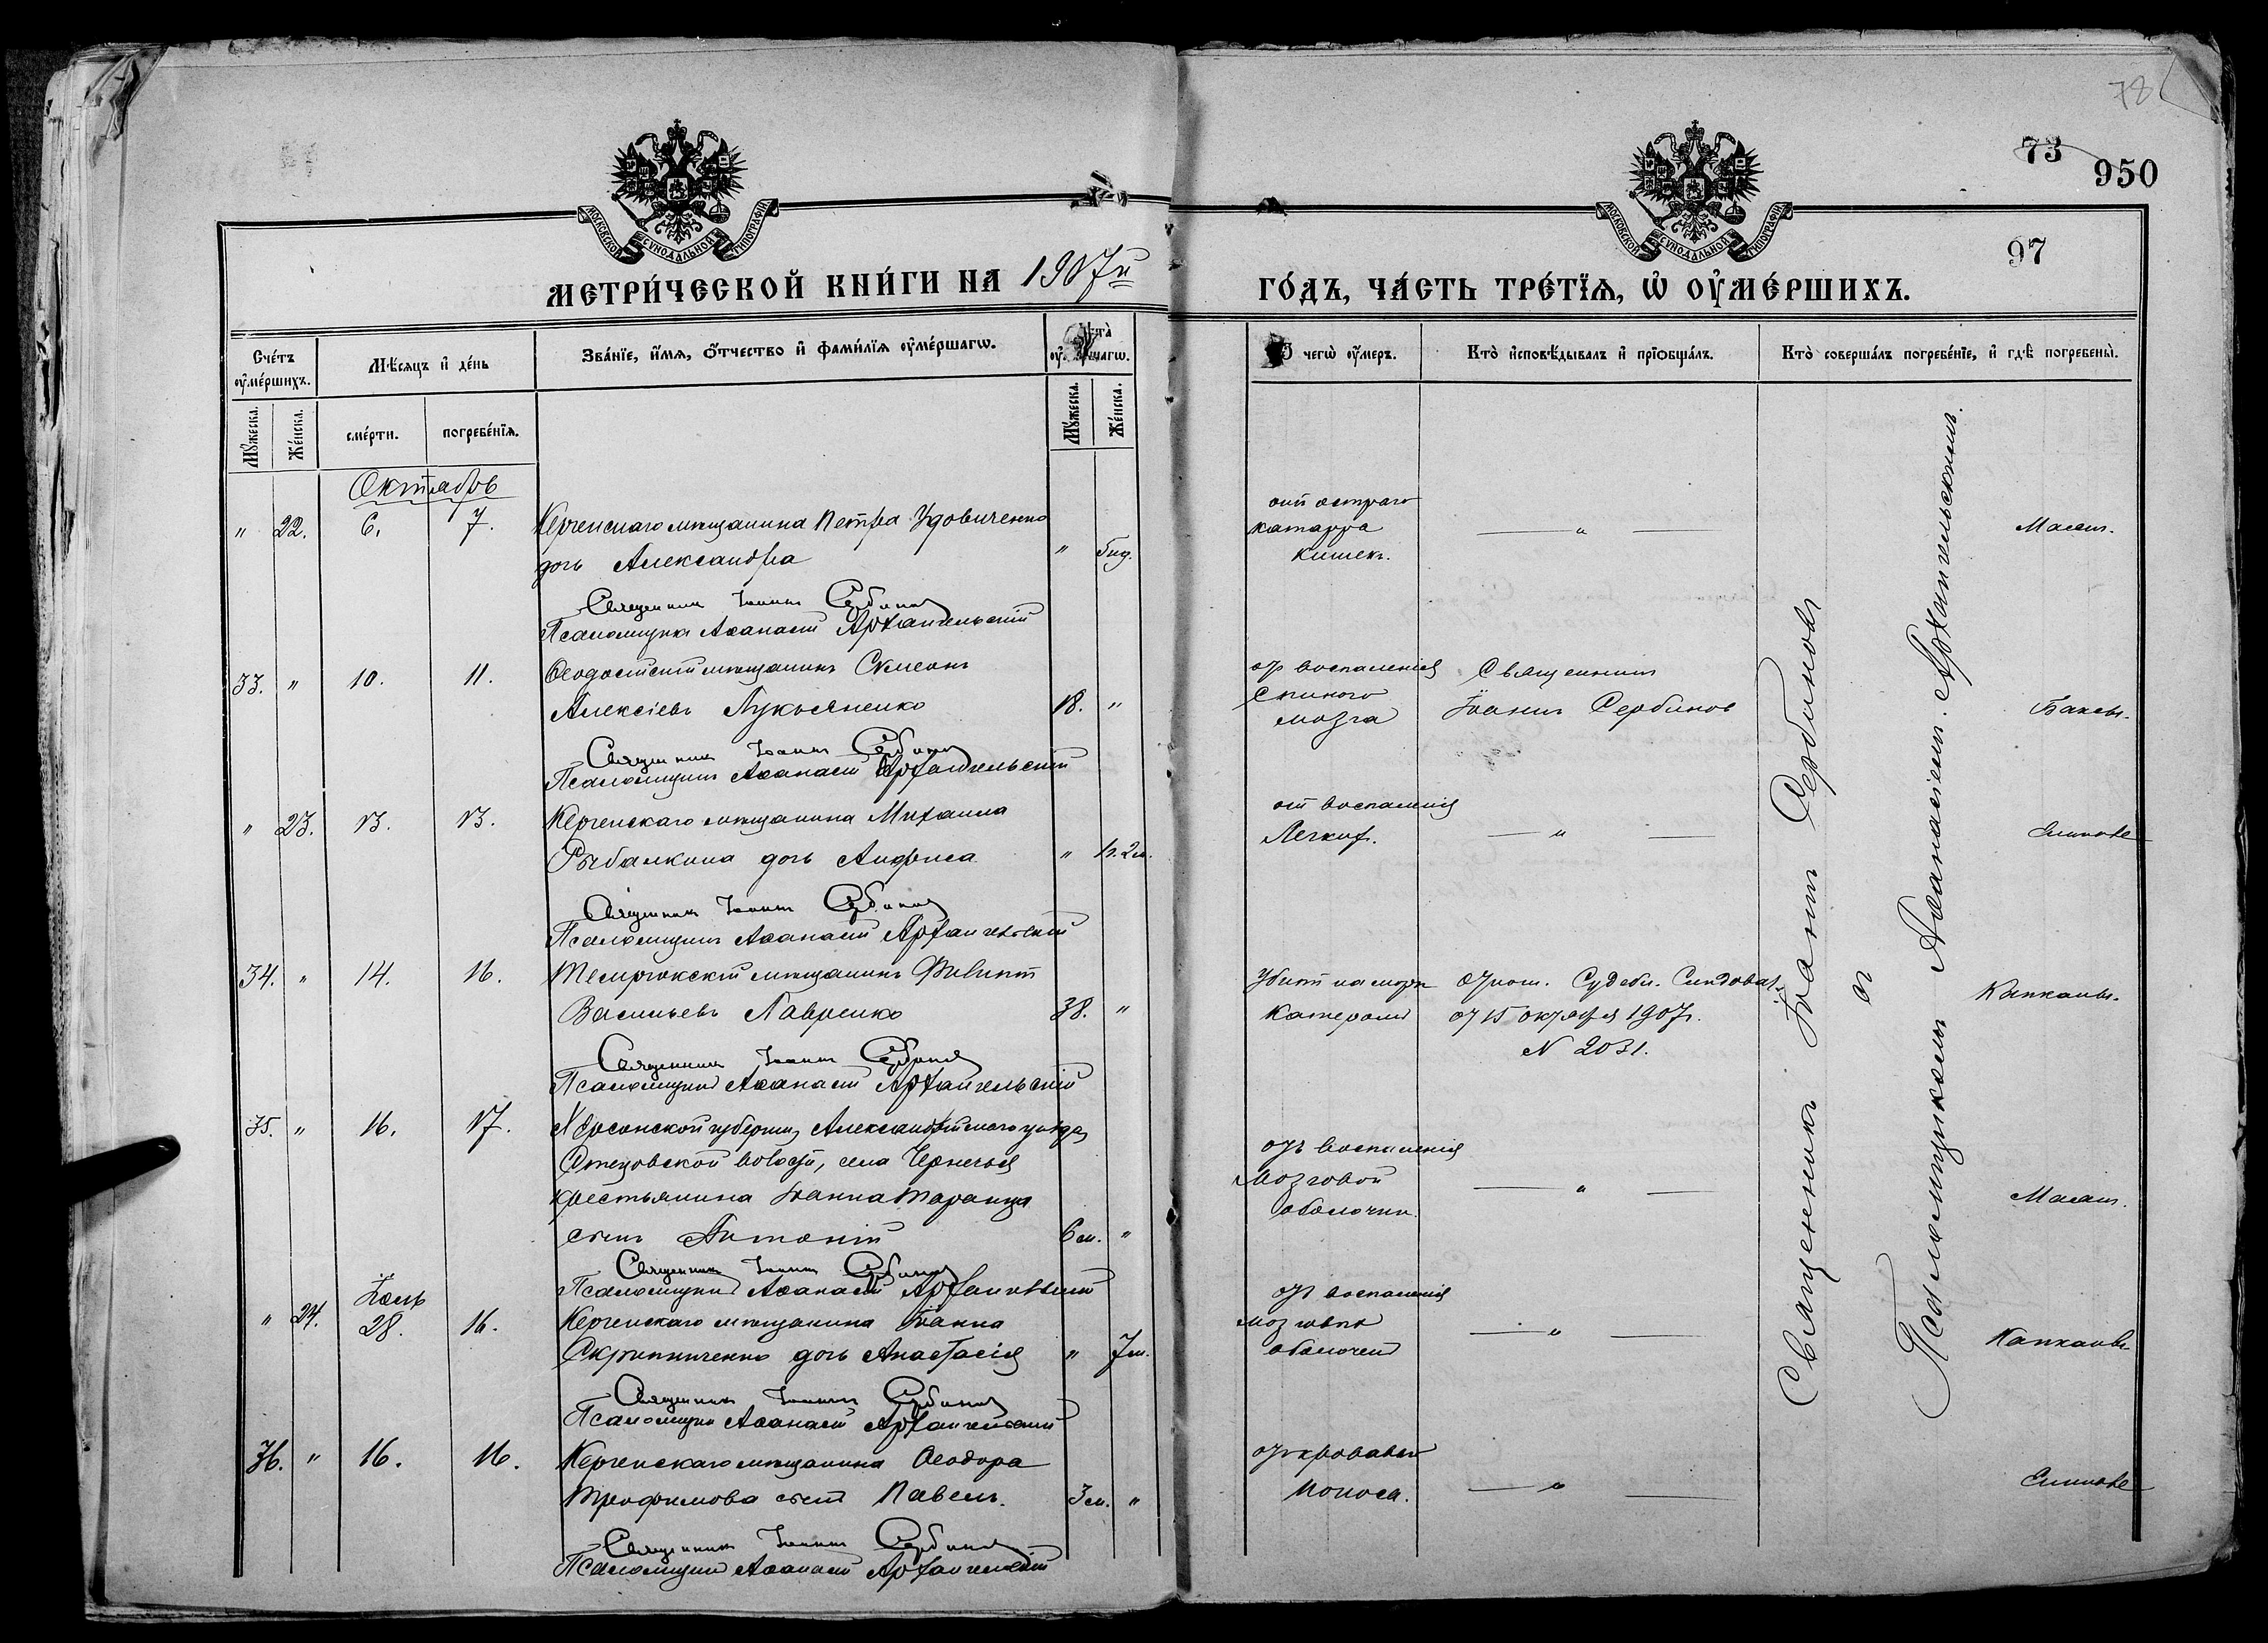 78
73
950
97
МОСКОВСКОЙ СУНОДАЛЬНОЙ ТИПОГРАФІИ
МОСКОВСКОЙ СУНОДАЛЬНОЙ ТИПОГРАФІИ
МЕТРИ́ЧЕСКОЙ КНИ́ГИ НА 1907й ГО́ДЪ, ЧА́СТЬ ТРЕ́ТЇѦ, Ѡ҆ ОУ҆МЕ́РШИХЪ.
Сче́тъ оу҆ме́ршихъ.
Мѣ́сяцъ и҆ де́нь
Зва́нїе, и҆́мѧ, ѻ҆́тчество и҆ фами́лїѧ оу҆ме́ршагѡ.
Ѿ чегѡ̀ оу҆́меръ.
Кто̀ и҆сповѣ́дывалъ и҆ прїѡбща́лъ.
Кто̀ соверша́лъ погребе́нїе, и҆ гдѣ̀ погребены̀.
Мꙋ́жеска.
Же́нска.
сме́рти.
погребе́нїѧ.
Мꙋ́жеска.
Же́нска.
Октябрь
" 22. 6. 7. Керченскаго мѣщанина Петра Удовиченко
дочь Александра " 6нд.
отъ остраго
катарра
кишекъ.
— " —
Священникъ Іоаннъ Сербиновъ
Псаломщикъ Аѳанасій Архангельскій
33. " 10. 11. Ѳеодосійскій мѣщанинъ Симеонъ
Алексіевъ Лукьяненко 18. "
отъ воспаленія
спиного
мозга
Священникъ
Іоаннъ Сербиновъ
Баксы.
Священникъ Іоаннъ Сербиновъ
Псаломщикъ Аѳанасій Архангельскій
" 23. 13. 13. Керченскаго мѣщанина Михаила
Рыбалкина дочь Анфиса " 1г. 2м.
отъ воспаленія
Легкихъ.
— " —
Священникъ Іоаннъ Сербиновъ
Псаломщикъ Аѳанасій Архангельскій
34. " 14. 16. Темрюкскій мѣщанинъ
Васильевъ Лавренко 38. "
Убитъ на морѣ
катеромъ
Отнош. Судебн. Слѣдоват.
от 15 октября 1907г.
N 2031.
Капканы.
Священникъ Іоаннъ Сербиновъ
Псаломщикъ Аѳанасій Архангельскій
35. " 16. 17. Херсонской губерніи, Александрійскаго уѣзда,
волости, села
крестьянина Іоанна Таранца
сынъ Антоній 6м. "
отъ воспаленія
мозговой
оболочки.
— " —
Священникъ Іоаннъ Сербиновъ
Псаломщикъ Аѳанасій Архангельскій
" 24. 28. 16. Керченскаго мѣщанина Іоанна
Скрипниченко дочь Анастасія " 7м.
отъ воспаленія
мозговых
оболочекъ
— " —
Капканы.
Священникъ Іоаннъ Сербиновъ
Псаломщикъ Аѳанасій Архангельскій
36. " 16. 16. Керченскаго мѣщанина Ѳеодора
Трофимова сынъ Павелъ. 3м. "
отъ кроваваго
поноса.
— " —
Священникъ Іоаннъ Сербиновъ
Псаломщикъ Аѳанасій Архангельскій
Священникъ Іоаннъ Сербиновъ
съ
Псаломщикомъ Аѳанасіемъ Архангельскимъ.